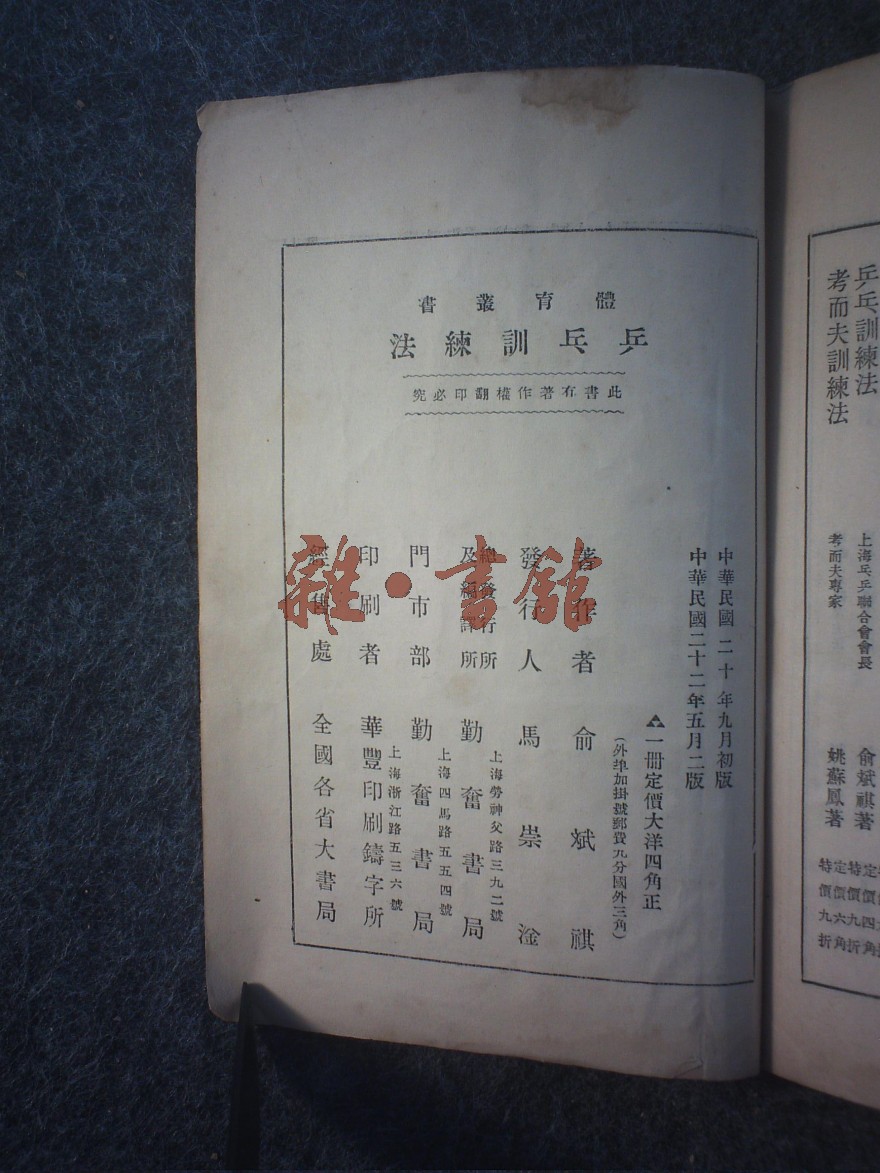 體育叢書
乒乓訓練法
此書有著作權翻印必究
中華民國二十年九月初版
中華民國二十二年五月二版
一冊定價大洋四角正
(外埠加掛號郵費九分國外三角)
著作者 俞斌祺
發行人 馬崇淦
總發行所及編譯所 勤奮書局
上海勞神父路三九二號
門市部 勤奮書局
上海四馬路五五四號
印刷者 華豐印刷鑄字所
上海浙江路五三六號
經售處 全國各省大書局
雜·書館
乒乓訓練法
上海乒乓聯合會會長
俞斌祺著
考而夫訓練法
考而夫專家
姚蘇鳳著
定價四角
特價九折
定價六角
特價九折